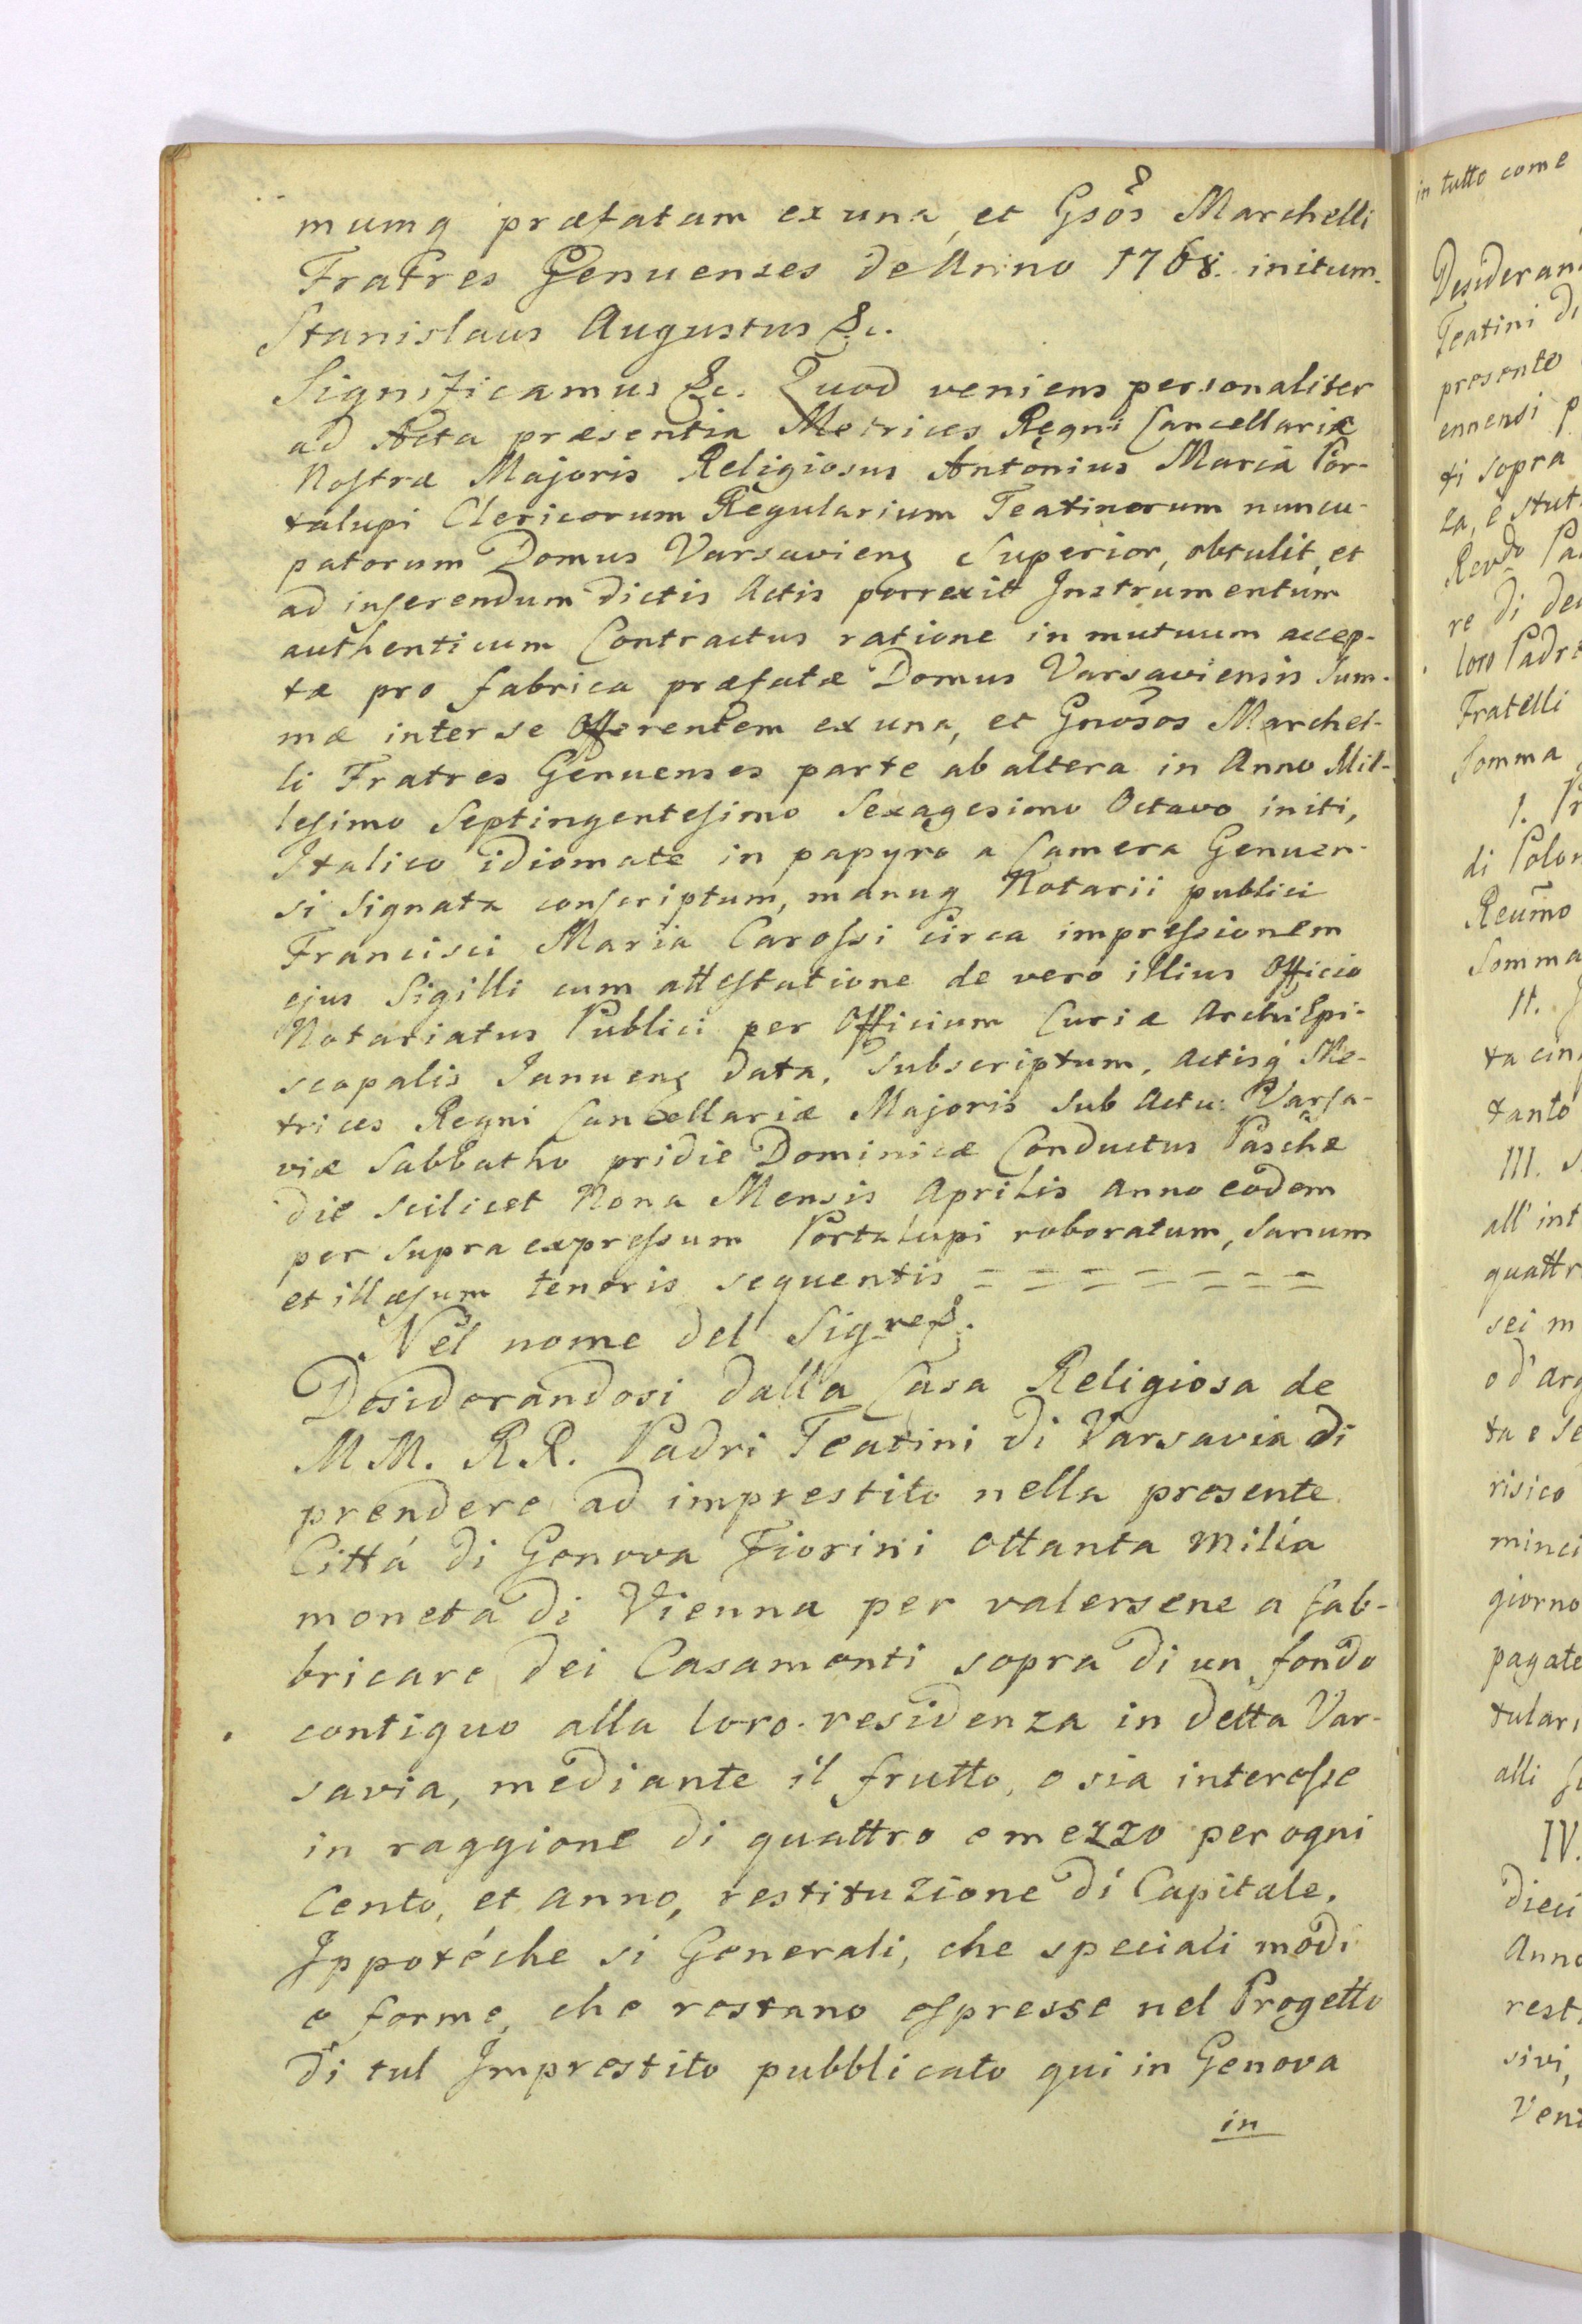 mumq præfatam ex una, et Gsos Marchelli
Fratres Genuenses de Anno 1768. initum.
Stanislaus Augustus &c.
Significamus &c. Quod veniens personaliter
ad Acta præsentia Metrices Regni Cancellariæ
Nostræ Majoris Religiosus Antonius Maria Por-
talupi Clericorum Regularium Teatinorum nuncu-
patorum Domus Varsaviens Superior, obtulit, et
ad inserendum dictis Actis porrexit Instrumentum
authenticum Contractus ratione in mutuum accep-
tæ pro fabrica præfatæ Domus Varsaviensis Sum-
mæ inter se Offerentem ex una, et Gnosos Marchel-
li Fratres Genuenses parte ab altera in Anno Mil-
lesimo Septingentesimo Sexagesimo Octavo initi,
Italico idiomate in papyro a Camera Genuen-
si Signata conscriptum, manuq Notarii publici
Francisci Maria Carossi circa impressionem
ejus Sigilli cum attestatione de vero illius Officio
Notariatus Publici per Officium Curiæ ArchiEpi-
scopalis Januens data, Subscriptum, Actisq Me-
trices Regni Cancellariæ Majoris sub Actu: Varsa-
viæ Sabbatho pridie Dominicæ Conductus Paschæ
die scilicet Nona Mensis Aprilis Anno eodem
per supra expressum Portalupi roboratum, sanum
et illæsum tenoris sequentis = = = = = = =
Nel nome del Sigre &.
Desiderandosi dalla Casa Religiosa de
M M. R R. Padri Teatini di Varsavia di
prendere ad imprestito nella presente
Cittá di Genova Fiorini ottanta milia
moneta di Vienna per valersene a fab-
bricare dei Casamenti sopra di un fondo
contiguo alla loro residenza in detta Var-
savia, mediante il frutto, o sia interesse
in raggione di quattro e mezzo per ogni
Cento, et anno, restituzione di Capitale,
Ippotéche si Generali, che speciali modi
e forme, che restano espresse nel Progetto
di tal Imprestito pubblicato qui in Genova
in
in tutto come
Desideran
Teatini di
presente
ennensi p
ti sopra
za, e stut
Revdo Pa
re di de
loro Padre
Fratelli
Somma
I. Pr
di Polon
Reumo
Somma
II.
ta cin
tanto
III.
all' int
quattr
sei m
o d'arg
ta e se
risico
minci
giorno
pagate
tular
alli
IV.
dieci
Anno
rest
sivi,
Ven